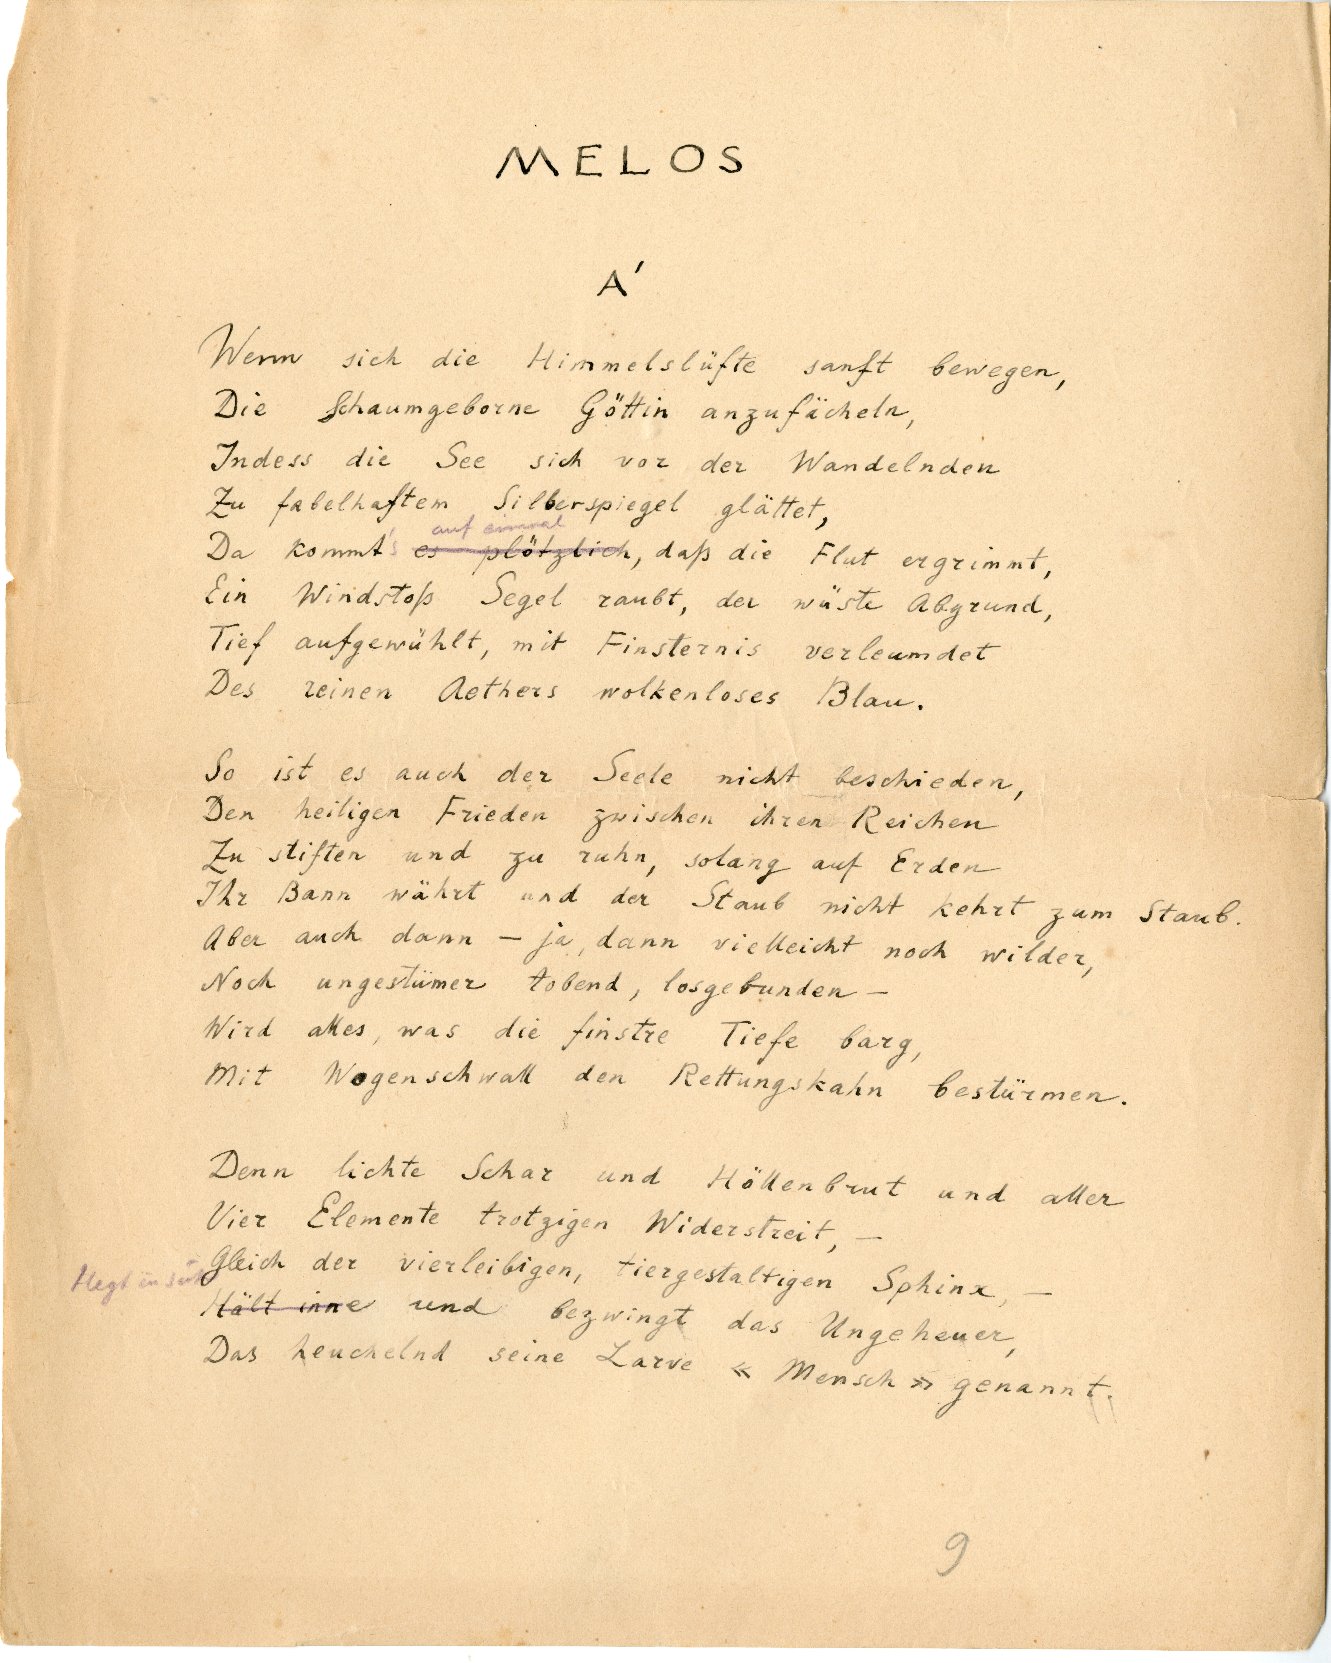 MELOS
A'
Wenn sich die Himmelslüfte sanft bewegen,
Die Schaumgeborne Göttin anzufächeln,
Indess die See sich vor der Wandelnden
Zu fabelhaftem Silberspiegel glättet,
auf einmal
Da kommt's es plötzlich, daß die Flut ergrimmt,
Ein Windstoß Segel raubt, der wüste Abgrund,
Tief aufgewühlt, mit Finsternis verleumdet
Des reinen Aethers wolkenloses Blau.
So ist es auch der Seele nicht beschieden,
Den heiligen Frieden zwischen ihren Reichen
Zu stiften und zu ruhn, solang auf Erden
Ihr Bann währt und der Staub nicht kehrt zum Staub.
Aber auch dann – ja, dann vielleicht noch wilder,
Noch ungestümer tobend, losgebunden –
Wird alles, was die finstre Tiefe barg,
Mit Wogenschwall den Rettungskahn bestürmen.
Denn lichte Schar und Höllenbrut und aller
Vier Elemente trotzigen Widerstreit, –
Gleich der vierleibigen, tiergestaltigen Sphinx, –
Hegt in sich
Hält inne und bezwingt das Ungeheuer,
Das heuchelnd seine Larve « Mensch » genannt.
9